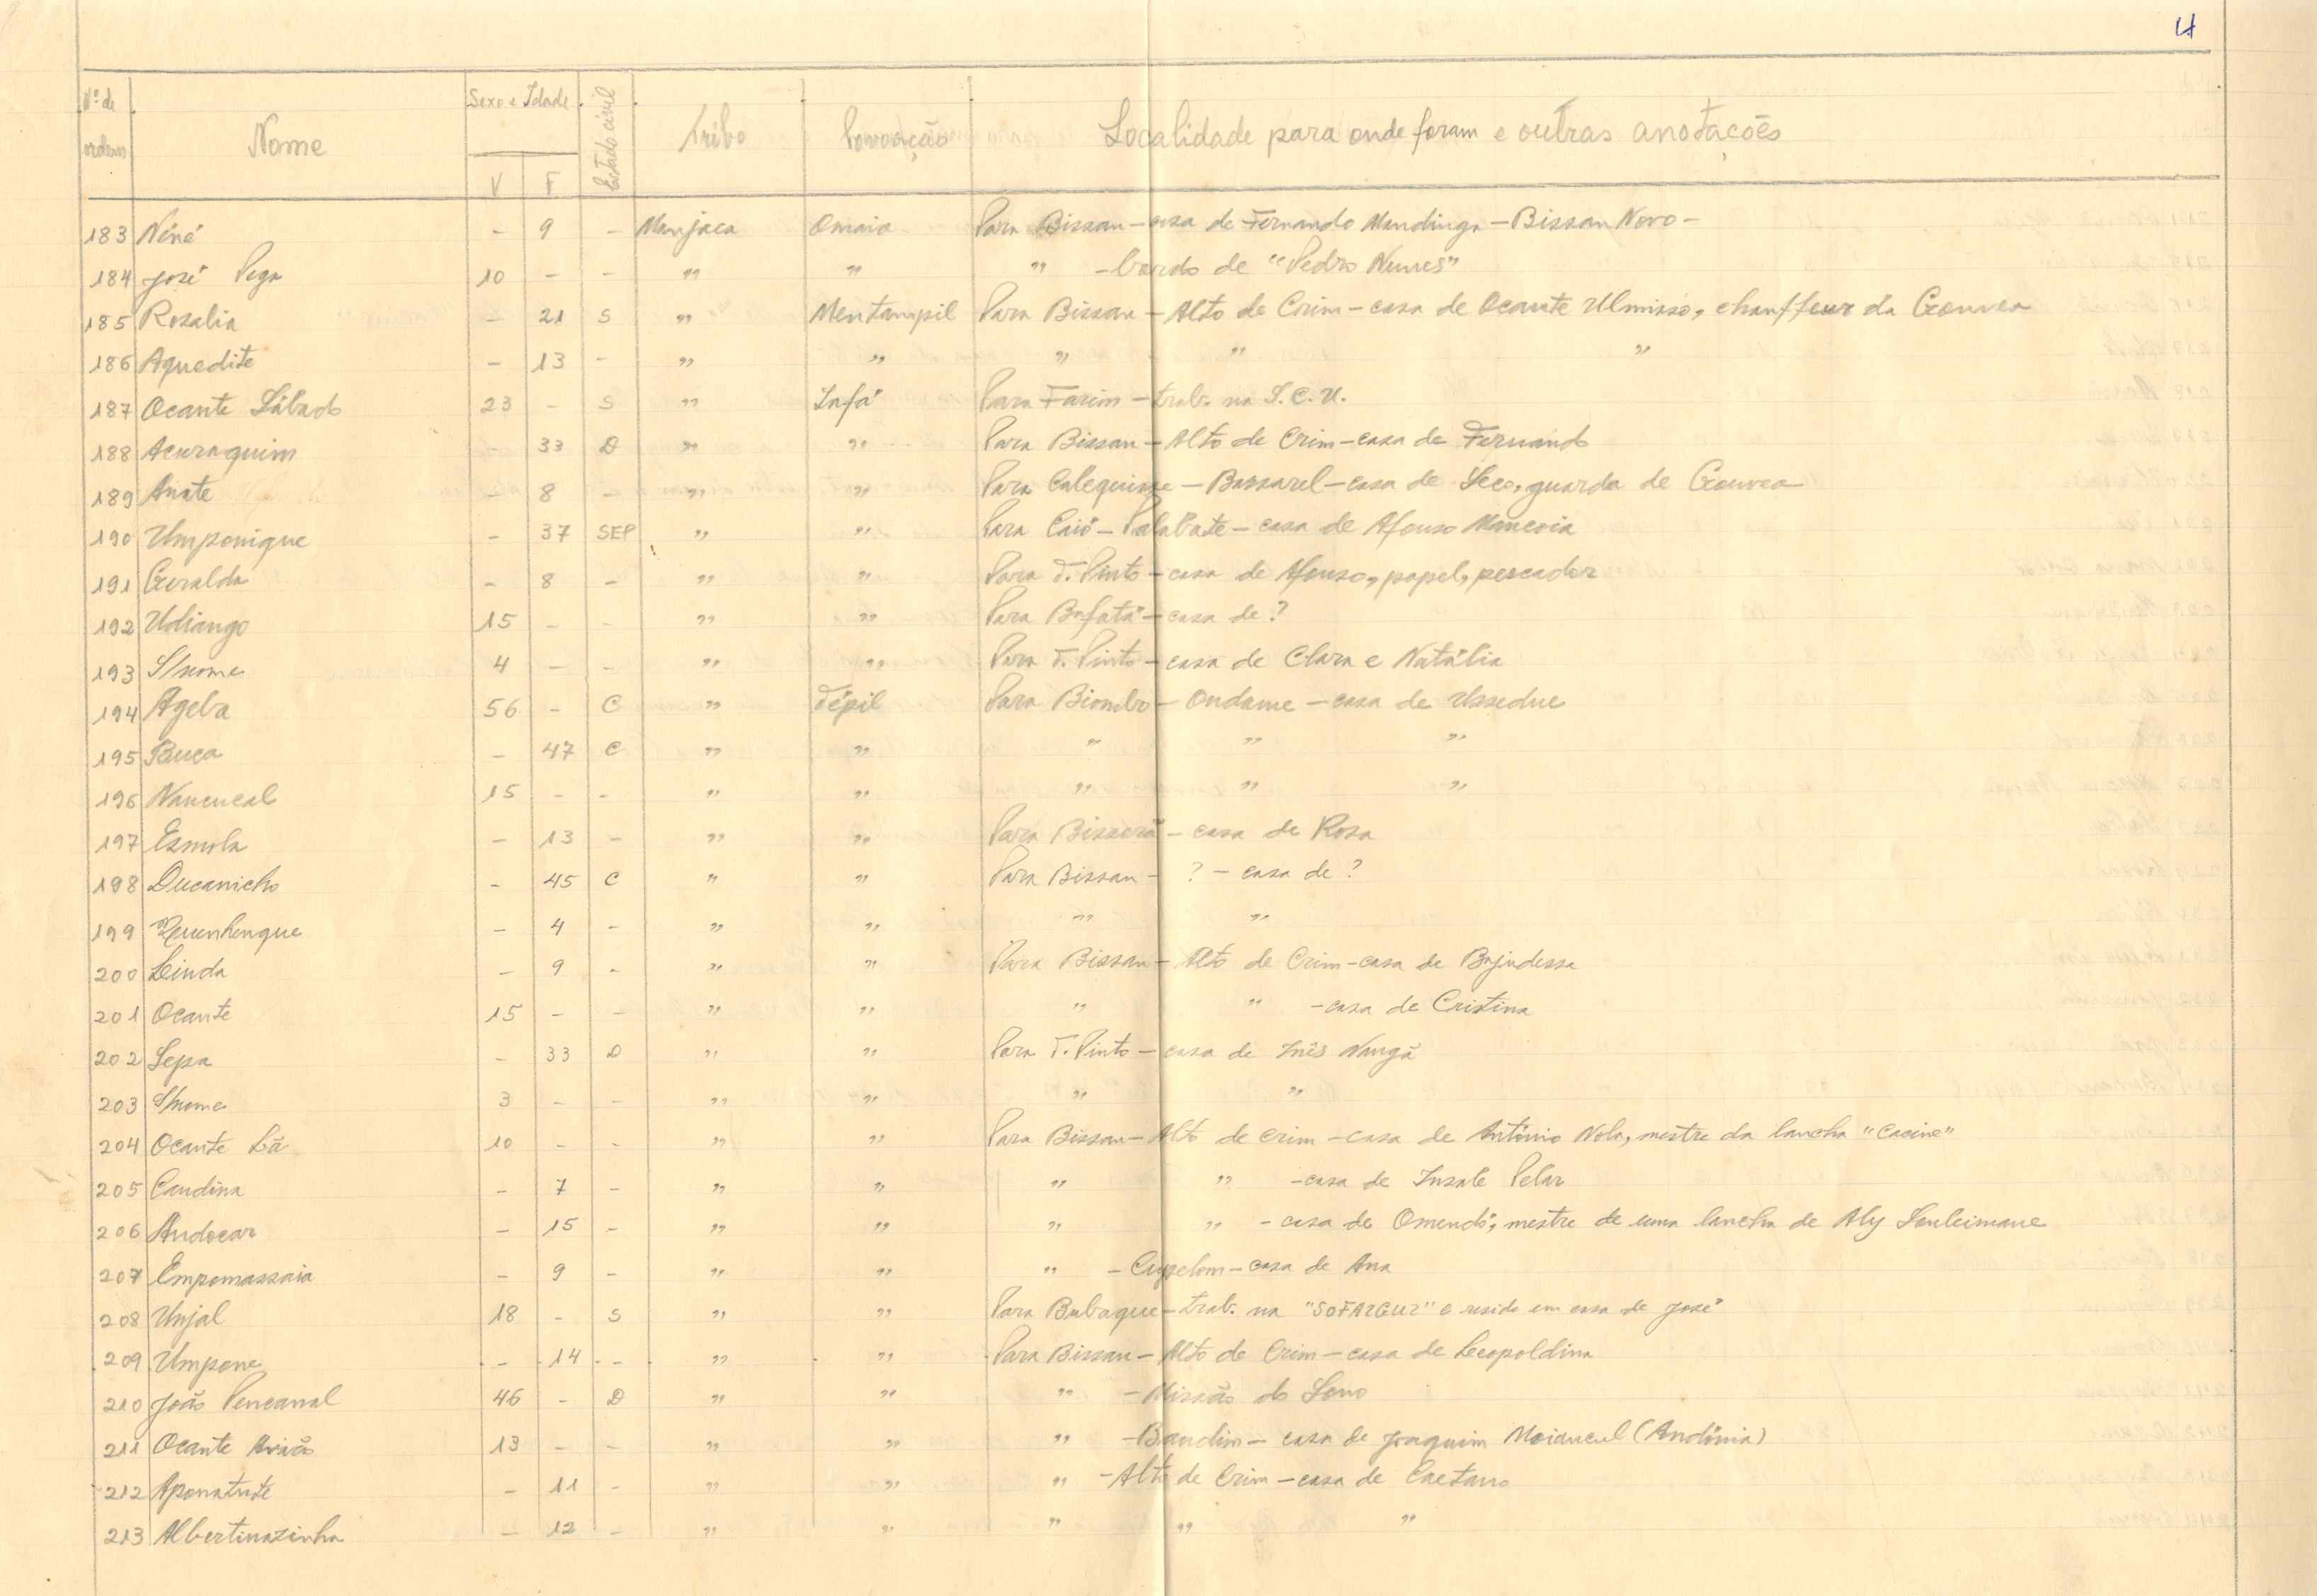 4
Nº de ordem Nome Sexo e Idade V F Estado civil Tribo Povoação Localidade para onde foram e outras anotações
183 Néné - 9 - Manjaca Omaia Para Bissau - casa de Fernando Mandinga - Bissau Novo -
184 José Pega 10 - - " " " - bordo de "Pedro Nunes"
185 Rosalia - 21 S " Mentampil Para Bissau - Alto de Crim - casa de Ocante Ulmisso, chauffeur da Gouvea
186 Aquedite - 13 - " " " " "
187 Ocante Sábado 23 - S " Infá Para Farim - trab. na S.C.U.
188 Acuraquim - 33 D " " Para Bissau - Alto de Crim - casa de Fernando
189 Anate - 8 - " " Para Calequisse - Bassarel - casa de Seco, guarda de Gouvea
190 Umponique - 37 SEP " " Para Caió - casa de Afonso Mancoia
191 Geralda - 8 - " " Para T. Pinto - casa de Afonso, papel, pescador
192 Udiango 15 - - " " Para Bafatá - casa de ?
193 S/nome 4 - - " " Para T. Pinto - casa de Clara e Natália
194 Ageba 56 - C " Tépil Para Biombo - Ondame - casa de Ussedue
195 Buca - 47 C " " " " "
196 Nancucal 15 - - " " " " "
197 Esmola - 13 - " " Para Bissorã - casa de Rosa
198 Ducanicho - 45 C " " Para Bissau - ? - casa de ?
199 - 4 - " " " "
200 Linda - 9 - " " Para Bissau - Alto de Crim - casa de Bajudessa
201 Ocante 15 - - " " " " - casa de Cristina
202 Sepa - 33 D " " Para T. Pinto - casa de Inês Nangã
203 S/nome 3 - - " " " "
204 Ocante Lã 10 - - " " Para Bissau - Alto de Crim - casa de António Nola, mestre da lancha "Cacine"
205 Candina - 7 - " " " " - casa de Insale Pelar
206 Andocar - 15 - " " " " - casa de Omendó, mestre de uma lancha de Aly Souleimane
207 Empomassaia - 9 - " " " - Cupelom - casa de Ana
208 Unjal 18 - S " " Para Bubaque - trab. na "SOFARGUI" e reside em casa de José
209 Umpane - 14 - " " Para Bissau - Alto de Crim - casa de Leopoldina
210 João Pencanal 46 - D " " " - Missão do Sono
211 Ocante 13 - - " " " - Bandim - casa de Joaquim (Andónia)
212 Aponatute - 11 - " " " - Alto de Crim - casa de Caetano
213 Albertinazinha - 12 - " " " " "